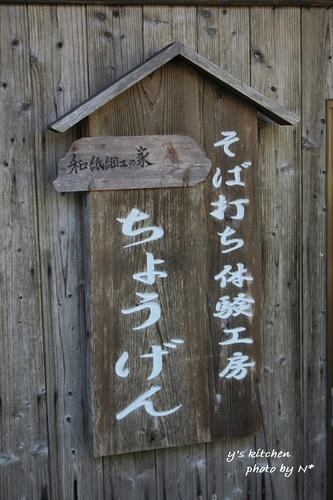 そば打ち体験工房
和紙細工の家
ちょうげん
y's kitchen
photo by N*